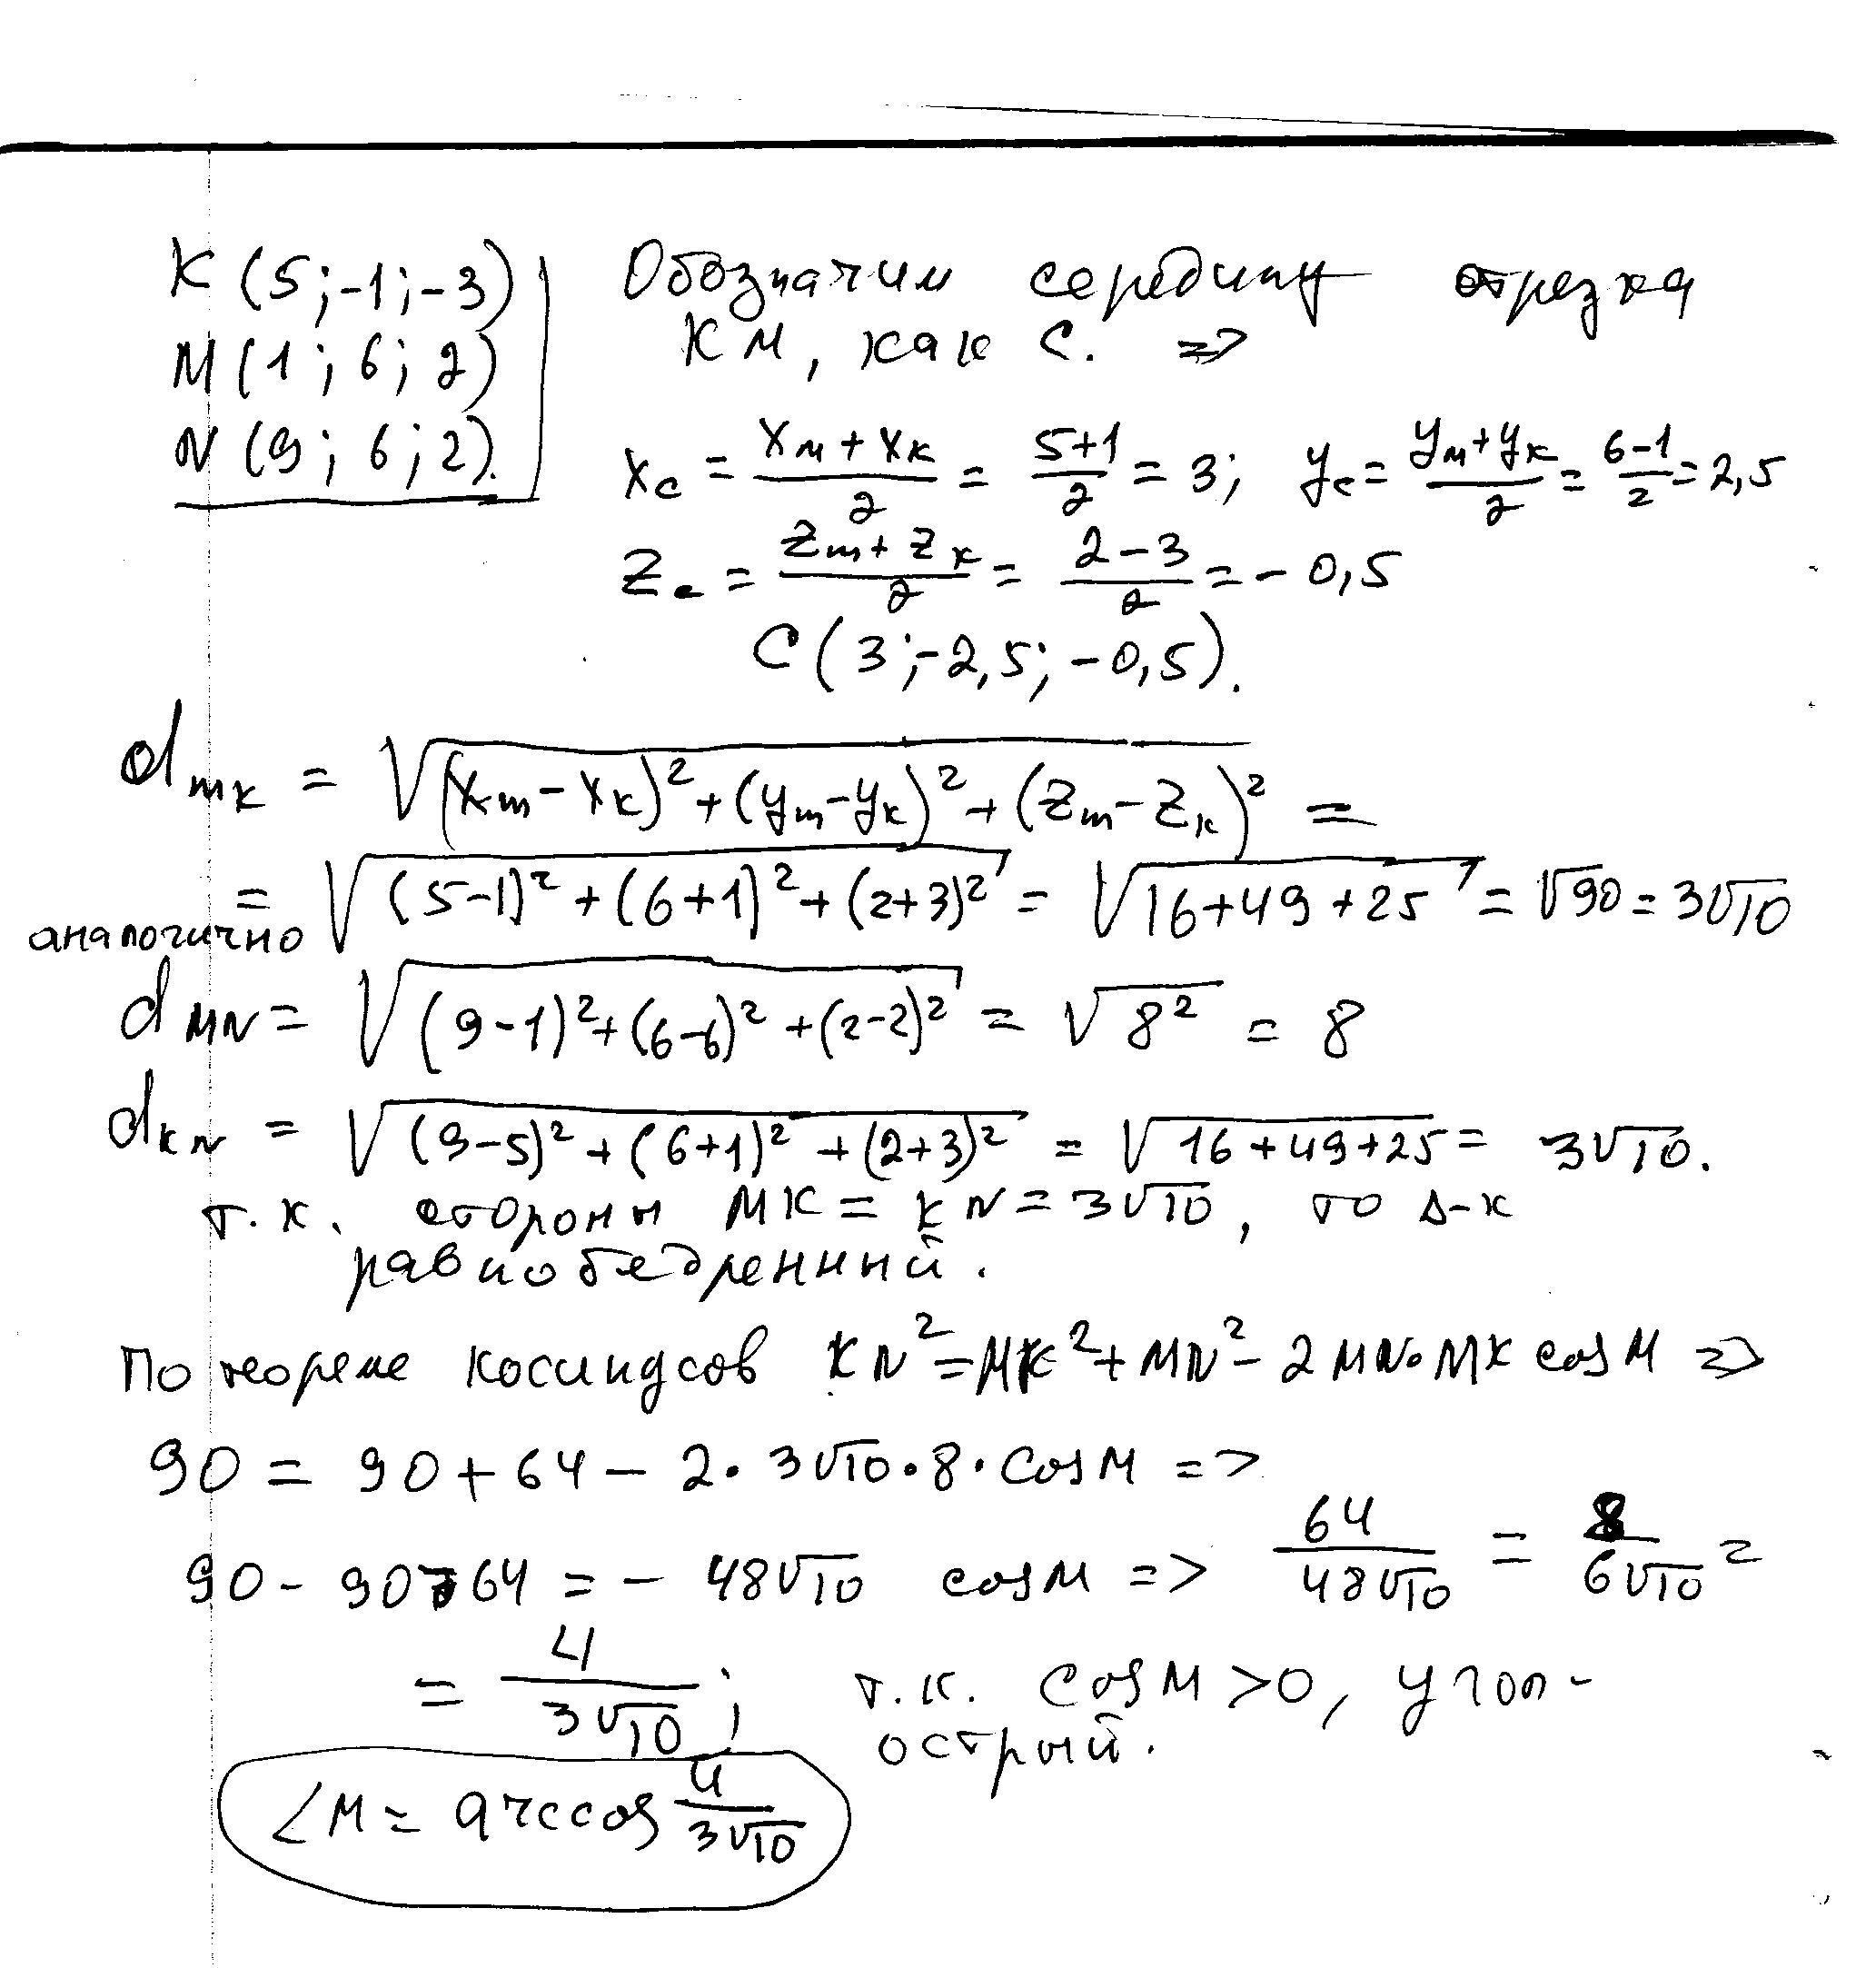 K (5;-1;-3)
M (1; 6; 2)
N (9; 6; 2).
Обозначим середину отрезка
КМ, как С. =>
Xc = (Xм + Xк)/2 = (5+1)/2 = 3; yc = (yм+yк)/2 = (6-1)/2 = 2,5
Zc = (Zm + Zк)/2 = (2-3)/2 = - 0,5
C (3;-2,5; -0,5).
dmk = √((Xm - Xk)² + (ym - yk)² + (Zm - Zk)²) =
= √((5-1)² + (6+1)² + (2+3)²) = √(16+49+25) = √90 = 3√10
аналогично
dMN = √((9-1)² + (6-6)² + (2-2)²) = √8² = 8
dKN = √((9-5)² + (6+1)² + (2+3)²) = √(16+49+25) = 3√10.
т.к. стороны MK = KN = 3√10, то Δ-к
равнобедренный.
По теореме косинусов KN² = MK² + MN² - 2MN·MK cos M =>
90 = 90 + 64 - 2·3√10·8·cos M =>
90 - 90 - 64 = - 48√10 cos M => 64/(48√10) = 8/(6√10) =
= 4/(3√10); т.к. cos M > 0, угол -
острый.
∠M = arccos 4/(3√10)